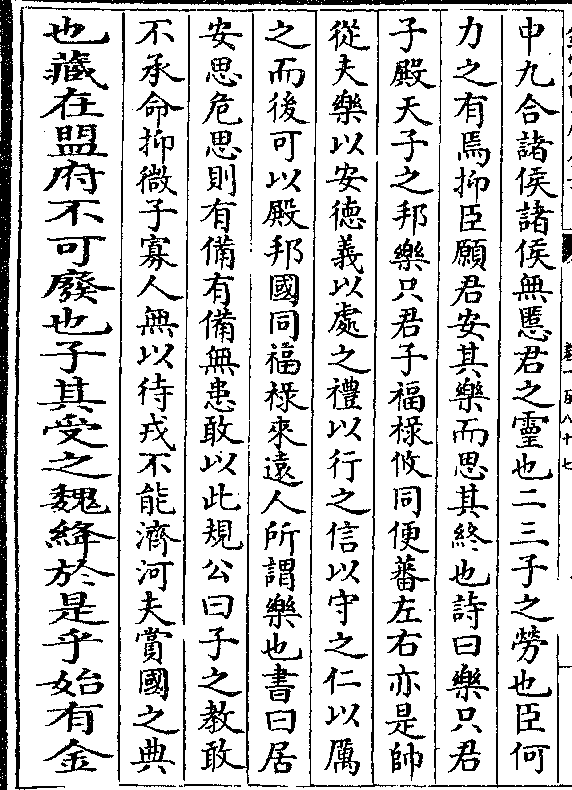 中九合諸侯諸侯無慝君之靈也二三子之勞也臣何
力之有焉抑臣願君安其樂而思其終也詩曰樂只君
子殿天子之邦樂只君子福祿攸同便蕃左右亦是帥
從夫樂以安德義以處之禮以行之信以守之仁以厲
之而後可以殿邦國同福祿來遠人所謂樂也書曰居
安思危思則有備有備無患敢以此規公曰子之教敢
不承命抑微子寡人無以待戎不能濟河夫賞國之典
也藏在盟府不可廢也子其受之魏絳於是乎始有金